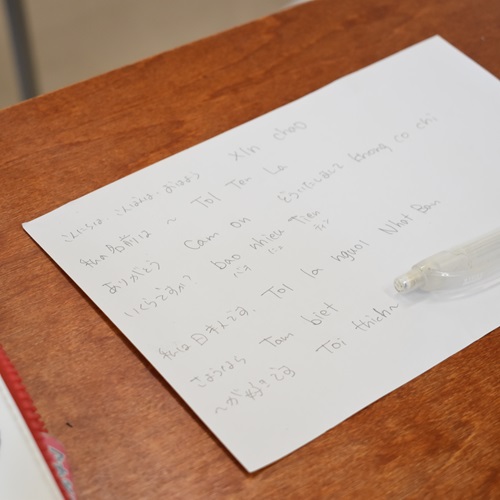 こんにちは、こんばんは、おはよう xin chao
私の名前は ~ Toi Ten La
ありがとう Cam on どういたしまして khong co chi
いくらですか? bao nhieu Tien
バオ ニュ ティン
私は日本人です。 Toi la nguoi Nhat Ban
さようなら Tam biet
~が好きです Toi thich~